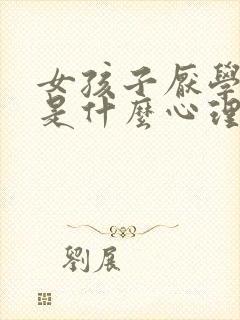 女孩子厭學
是什麼心理
劉展